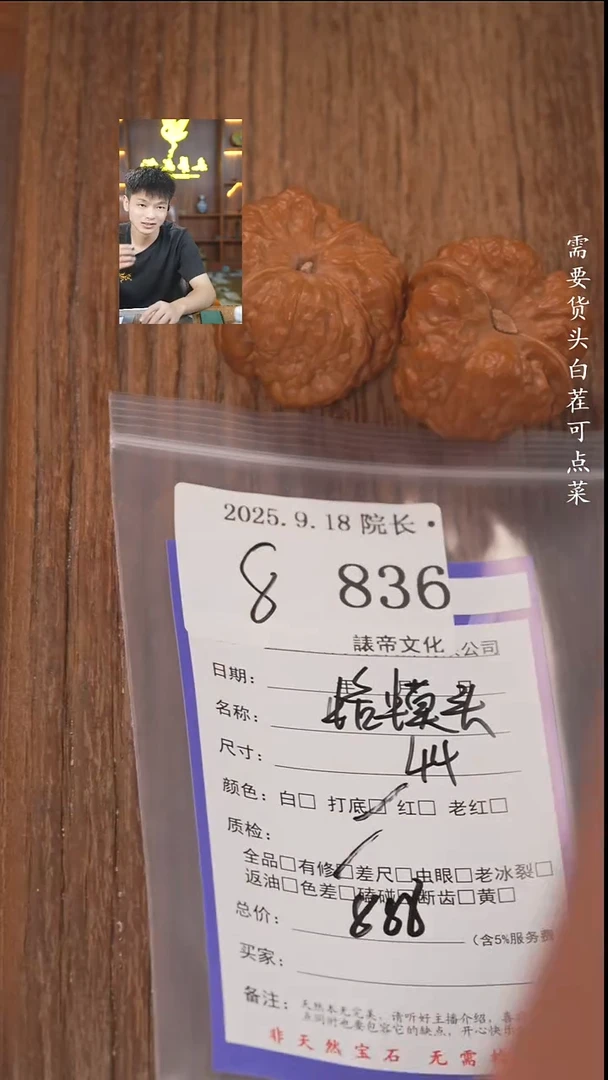 需要货头白茬可点菜
2025.9.18 院长·
8 836
婊帝文化 公司
日期：
名称： 头
尺寸： 44
颜色：白□ 打底□ 红□ 老红□
质检：
全品□有修□差尺□虫眼□老冰裂□
返油□色差□磕碰□断齿□黄□
总价： 888
（含5%服务费
买家：
备注： 天然本无完美，请听好主播介绍，喜
也要包容它的缺点，开心快乐
非天然宝石 无需